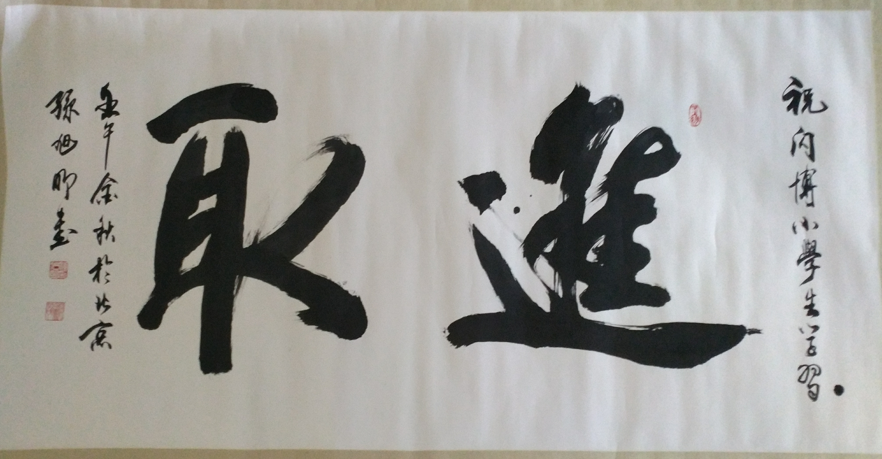 祝闪博小學生学習
進取
壬午金秋於北京
孫旭明書